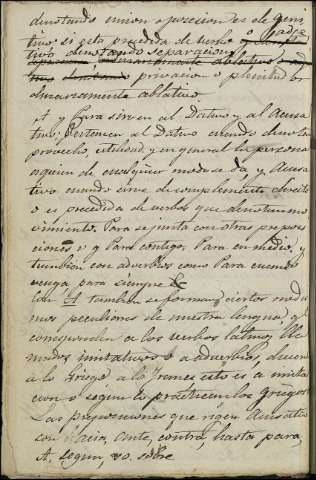 denotando union o posecion es de geni
tivo si esta presedida de verbo o adje
tivo denotando separacion
privacion o plenitud or
dinariamente ablativo
A y Para sirven al Dativo y al Acusa
tivo; Pertenecen al Dativo cuando denotan
provecho, utilidad, y en general la persona
a quien de cualquier modo se da y Acusa
tivo cuando sirve de complemento directo
o es precedida de verbos que denotan mo
vimiento. Para se junta con otras preposi
ciones v g Para contigo, Para en medio, y
tambien con adverbios como Para cuando
venga para siempre &c
Con A tambien se forman ciertos mod
mos peculiares de nuestra lengua q
corresponden a los verbos latinos
modos imitativos o adverbios,
a lo Griego a lo Frances esto es a imita
cion o segun lo practican los Griegos
Las preposiciones que rigen Acusativo
son Hacia, ante, contra, hasta para
A, segun, so, sobre